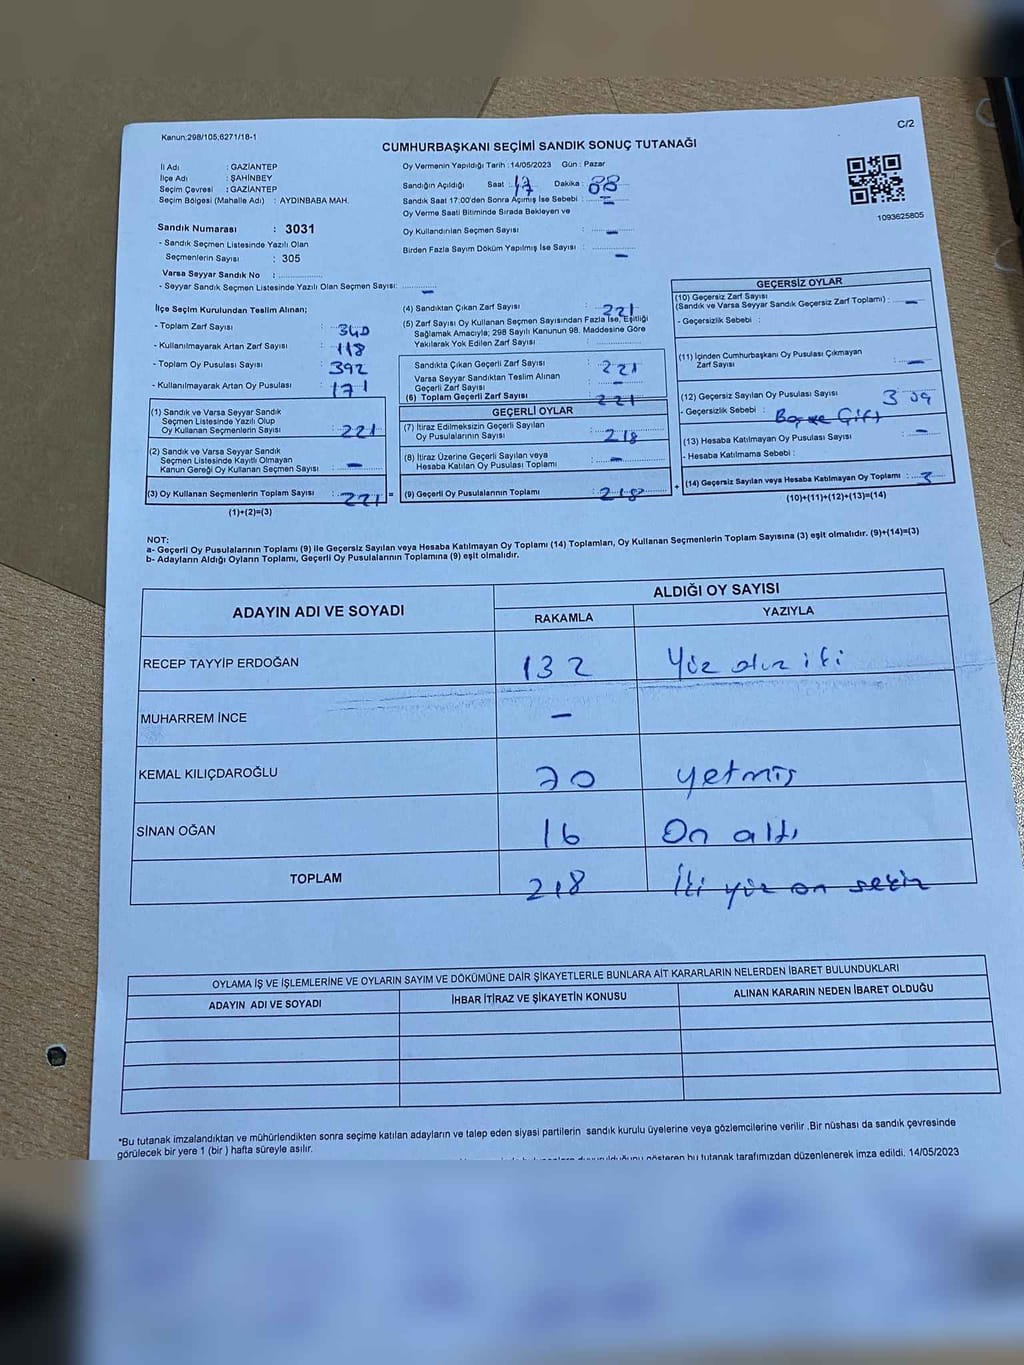 Kanun:298/105,6271/18-1
C/2
CUMHURBAŞKANI SEÇİMİ SANDIK SONUÇ TUTANAĞI
İl Adı : GAZİANTEP
İlçe Adı : ŞAHİNBEY
Seçim Çevresi : GAZİANTEP
Seçim Bölgesi (Mahalle Adı) : AYDINBABA MAH.
Oy Vermenin Yapıldığı Tarih : 14/05/2023 Gün : Pazar
Sandığın Açıldığı Saat : 17 Dakika :
Sandık Saat 17:00'den Sonra Açılmış İse Sebebi : -
Oy Verme Saati Bitiminde Sırada Bekleyen ve
Oy Kullandırılan Seçmen Sayısı : -
Birden Fazla Sayım Döküm Yapılmış İse Sayısı : -
1093625805
Sandık Numarası : 3031
- Sandık Seçmen Listesinde Yazılı Olan
Seçmenlerin Sayısı : 305
Varsa Seyyar Sandık No :
- Seyyar Sandık Seçmen Listesinde Yazılı Olan Seçmen Sayısı: -
İlçe Seçim Kurulundan Teslim Alınan;
- Toplam Zarf Sayısı : 340
- Kullanılmayarak Artan Zarf Sayısı : 118
- Toplam Oy Pusulası Sayısı : 392
- Kullanılmayarak Artan Oy Pusulası : 171
(1) Sandık ve Varsa Seyyar Sandık
Seçmen Listesinde Yazılı Olup
Oy Kullanan Seçmenlerin Sayısı : 221
(2) Sandık ve Varsa Seyyar Sandık
Seçmen Listesinde Kayıtlı Olmayan
Kanun Gereği Oy Kullanan Seçmen Sayısı : -
(3) Oy Kullanan Seçmenlerin Toplam Sayısı : 221
(1)+(2)=(3)
(4) Sandıktan Çıkan Zarf Sayısı : 221
(5) Zarf Sayısı Oy Kullanan Seçmen Sayısından Fazla İse, Eşitliği
Sağlamak Amacıyla; 298 Sayılı Kanunun 98. Maddesine Göre
Yakılarak Yok Edilen Zarf Sayısı :
Sandıkta Çıkan Geçerli Zarf Sayısı : 221
Varsa Seyyar Sandıktan Teslim Alınan
Geçerli Zarf Sayısı : -
(6) Toplam Geçerli Zarf Sayısı : 221
GEÇERLİ OYLAR
(7) İtiraz Edilmeksizin Geçerli Sayılan
Oy Pusulalarının Sayısı : 218
(8) İtiraz Üzerine Geçerli Sayılan veya
Hesaba Katılan Oy Pusulası Toplamı : -
(9) Geçerli Oy Pusulalarının Toplamı : 218
GEÇERSİZ OYLAR
(10) Geçersiz Zarf Sayısı
(Sandık ve Varsa Seyyar Sandık Geçersiz Zarf Toplamı) : -
- Geçersizlik Sebebi :
(11) İçinden Cumhurbaşkanı Oy Pusulası Çıkmayan
Zarf Sayısı : -
(12) Geçersiz Sayılan Oy Pusulası Sayısı : 3
- Geçersizlik Sebebi : Boş ve Çift
(13) Hesaba Katılmayan Oy Pusulası Sayısı : -
- Hesaba Katılmama Sebebi :
(14) Geçersiz Sayılan veya Hesaba Katılmayan Oy Toplamı : 3
(10)+(11)+(12)+(13)=(14)
NOT:
a- Geçerli Oy Pusulalarının Toplamı (9) ile Geçersiz Sayılan veya Hesaba Katılmayan Oy Toplamı (14) Toplamları, Oy Kullanan Seçmenlerin Toplam Sayısına (3) eşit olmalıdır. (9)+(14)=(3)
b- Adayların Aldığı Oyların Toplamı, Geçerli Oy Pusulalarının Toplamına (9) eşit olmalıdır.
ADAYIN ADI VE SOYADI
ALDIĞI OY SAYISI
RAKAMLA YAZIYLA
RECEP TAYYİP ERDOĞAN 132 Yüz otuz iki
MUHARREM İNCE -
KEMAL KILIÇDAROĞLU 70 yetmiş
SİNAN OĞAN 16 On altı
TOPLAM 218 İki yüz on sekiz
OYLAMA İŞ VE İŞLEMLERİNE VE OYLARIN SAYIM VE DÖKÜMÜNE DAİR ŞİKAYETLERLE BUNLARA AİT KARARLARIN NELERDEN İBARET BULUNDUKLARI
ADAYIN ADI VE SOYADI İHBAR İTİRAZ VE ŞİKAYETİN KONUSU ALINAN KARARIN NEDEN İBARET OLDUĞU
*Bu tutanak imzalandıktan ve mühürlendikten sonra seçime katılan adayların ve talep eden siyasi partilerin sandık kurulu üyelerine veya gözlemcilerine verilir .Bir nüshası da sandık çevresinde
görülecek bir yere 1 (bir ) hafta süreyle asılır.
gösteren bu tutanak tarafımızdan düzenlenerek imza edildi. 14/05/2023